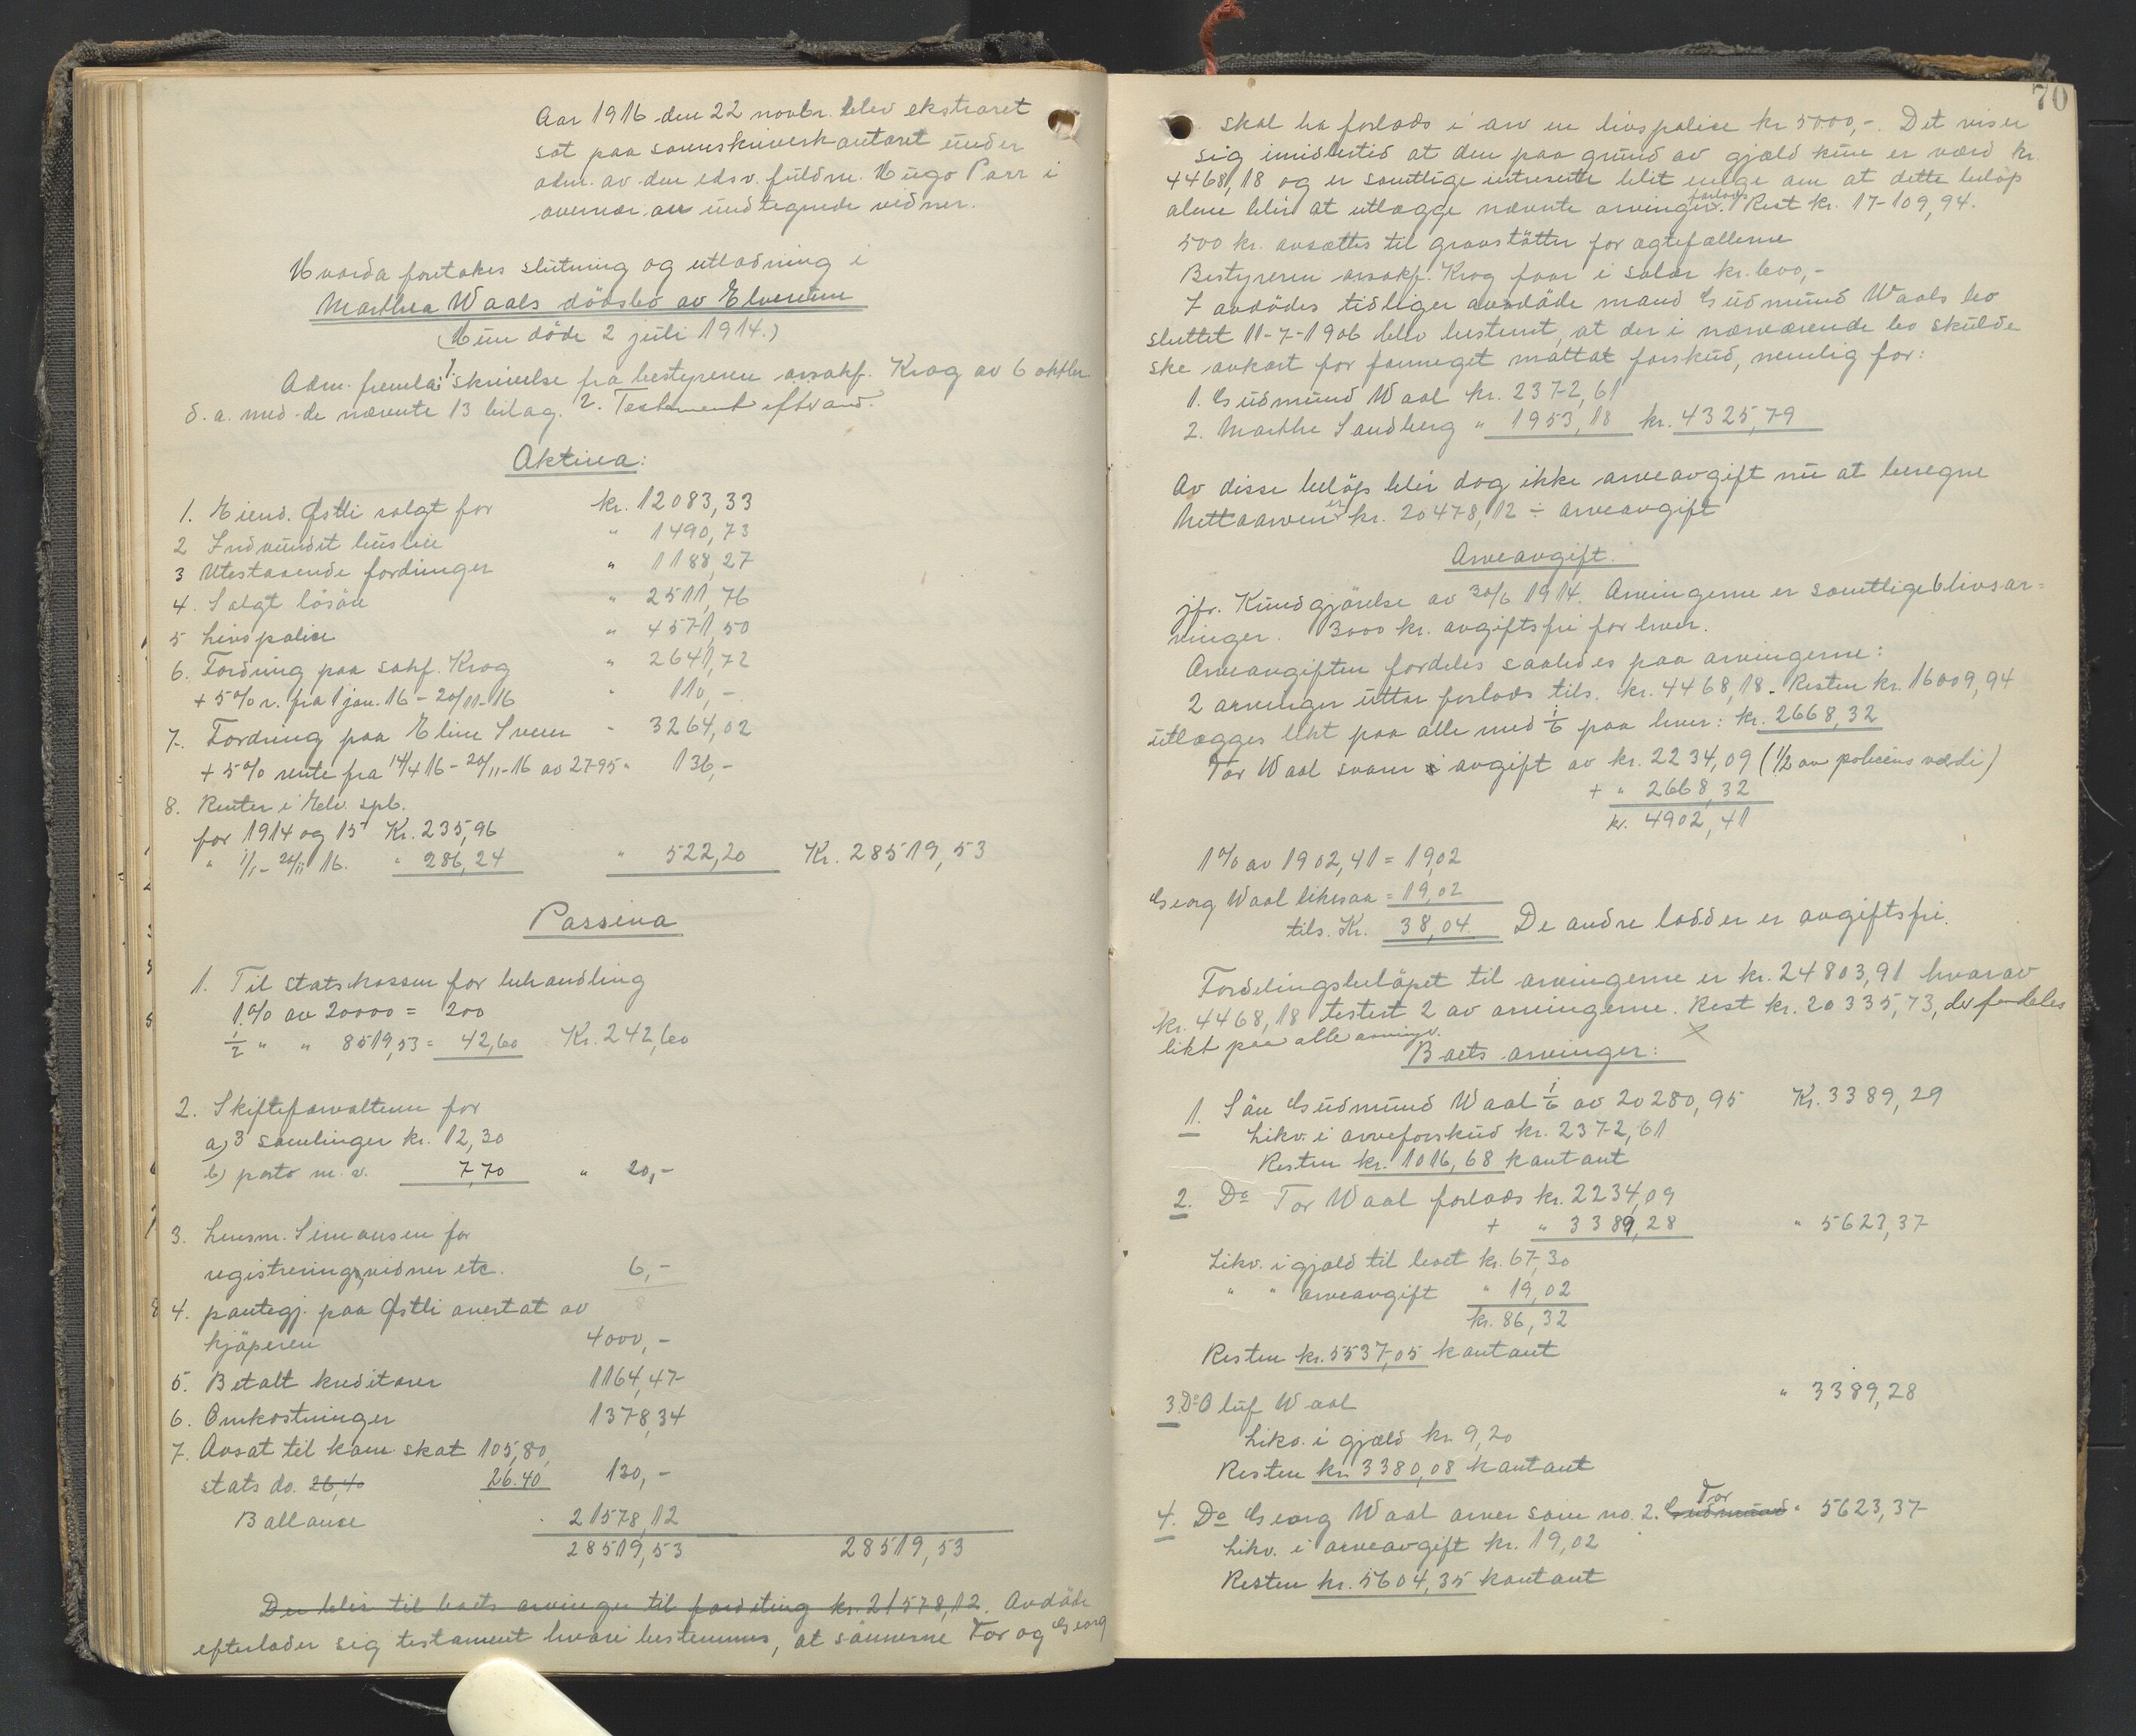 Aar 1916 den 22 novbr. blev ekstraret
sat paa sorenskriverkontoret under
adm. av den edsv. fuldm. Hugo Parr i
overvær av undtegnede vidner.
Hvorda foretokes slutning og utlodning i
Marthea Waals dödsbo av Elverum
(Hun döde 2 juli 1914.)
Adm. fremla 1. skrivelse fra bestyreren o.r.sakf. Krog av 6 oktbr.
d. a. med de nævnte 13 bilag. 2. Testament
Aktiva:
1. Eiend. Østli solgt for kr. 12083,33
2 Indvundet husleie " 1490,73
3 Utestaaende fordringer " 1188,27
4. Solgt lösöre " 2511,76
5 Livspolise " 4571,50
6. Fordring paa sakf. Krog " 2641,72
+ 5% r. fra 1 jan. 16 - 20/11-16 " 110,-
7. Fordring paa Eline Sveen - 3264,02
+ 5% rente fra 14/4 16 - 20/11-16 av 2795 " 136,-
8. Renter i Elv. spb.
for 1914 og 15 Kr. 235,96
" 1/1 - 20/11 16. " 286,24 " 522,20 Kr. 28519,53
Passiva
1. Til statskassen for behandling
1% av 20000 = 200
1/2 " " 8519,53 = 42,60 Kr. 242,60
2. Skifteforvalteren for
a) 3 samlinger kr. 12,30
b) porto m. v. 7,70 " 20,-
3. Lensm. Simonsen for
registrering, vidner etc. 6,-
4. pantegj. paa Østli overtat av
kjöperen 4000,-
5. Betalt kreditorer 1164,47
6. Omkostninger 1378,34
7. Avsat til kom. skat 105,80
stats do. 26,40 26.40 130,-
Ballance 21578,12
28519,53 28519,53
Der blir til boets arvinger til fordeling kr. 21578,12. Avdöde
efterlader sig testament hvori bestemmes, at sönnerne Tor og Georg
70
skal ha forlods i arv en livspolise kr 5000,-. Det viser
sig imidlertid at den paa grund av gjæld kun er værd kr.
4468,18 og er samtlige intreserte blit enige om at dette belöp
alene blir at utlægge nævnte arvinger forlods. Rest kr. 17109,94.
500 kr. avsættes til gravstötter for egtefællerne
Bestyreren o.r.sakf. Krog faar i salær kr. 600,-
I avdödes tidligere avdöde mand Gudmund Waals bo
sluttet 11-7-1906 blev bestemt, at der i nærværende bo skulde
ske avkort for formeget mottat forskud, nemlig for:
1. Gudmund Waal kr. 2372,61
2. Marthe Sandberg " 1953,18 kr. 4325,79
Av disse belöp blir dog ikke arveavgift nu at beregne
Nettoarven er kr. 20478,12 ÷ arveavgift
Arveavgift.
jfr. Kundgjörelse av 30/6 1914. Arvingerne er samtlige 6 livsar=
vinger. 3000 kr. avgiftsfri for hver.
Arveavgiften fordeles saaledes paa arvingerne:
2 arvinger uttar forlods tils. kr. 4468,18. Resten kr. 16009,94
utlægges likt paa alle med 1/6 paa hver: kr. 2668,32
Tor Waal svarer avgift av kr. 2234,09 (1/2 av policens værdi)
+ " 2668,32
kr. 4902,41
1% av 1902,41 = 19,02
Georg Waal likesaa = 19,02
tils. Kr. 38,04. De andre lodder er avgiftsfri.
Fordelingsbelöpet til arvingerne er kr. 24803,91 hvorav
kr. 4468,18 testert 2 av arvingerne. Rest kr. 20335,73, der fordeles
likt paa alle arving.
Boets arvinger:
1. Sön Gudmund Waal 1/6 av 20280,95 Kr. 3389,29
Likv. i arveforskud kr. 2372,61
Resten kr. 1016,68 kontant
2. Do Tor Waal forlods kr. 2234,09
+ " 3389,28 " 5623,37
Likv. i gjæld til boet kr. 67,30
" " arveavgift " 19,02
kr. 86,32
Resten kr. 5537,05 kontant
3. Do Oluf Waal " 3389,28
Likv. i gjæld kr. 9,20
Resten kr. 3380,08 kontant
4. Do Georg Waal arver som no. 2. Gudmund Tor " 5623,37
Likv. i arveavgift kr. 19,02
Resten kr. 5604,35 kontant